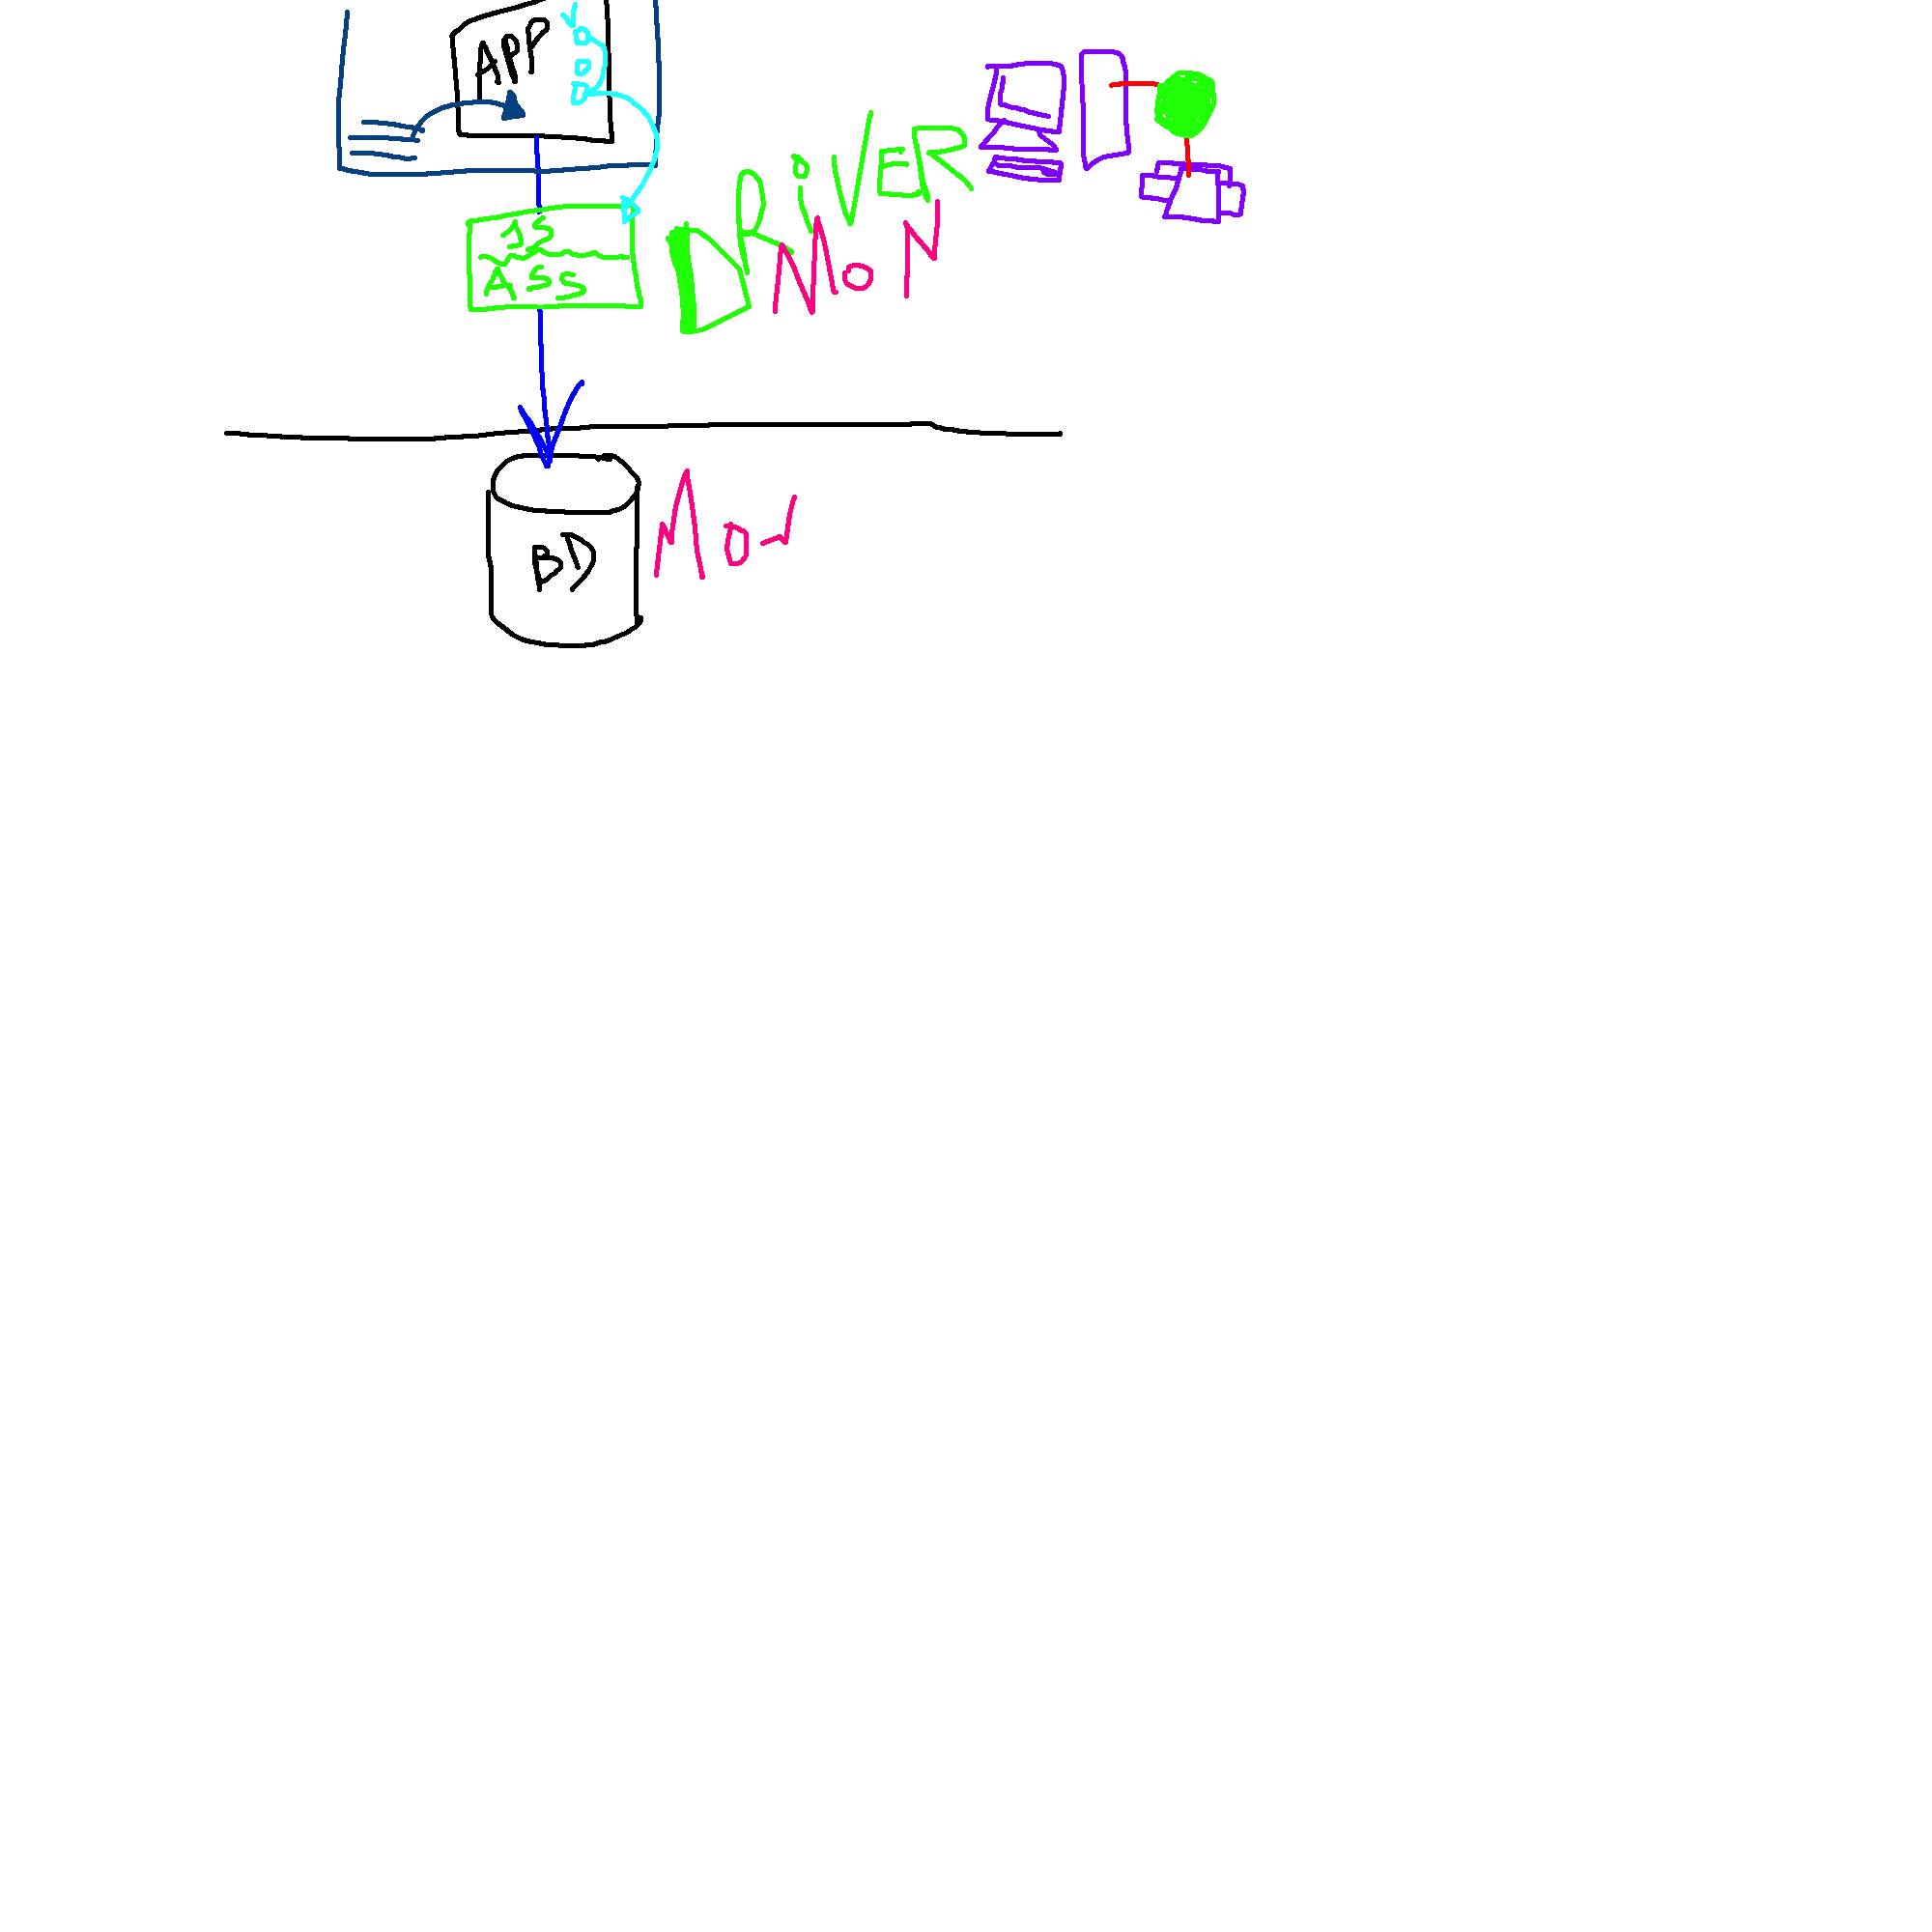 APP
JS
ASS
DRiVER
MoN
BD
Mon